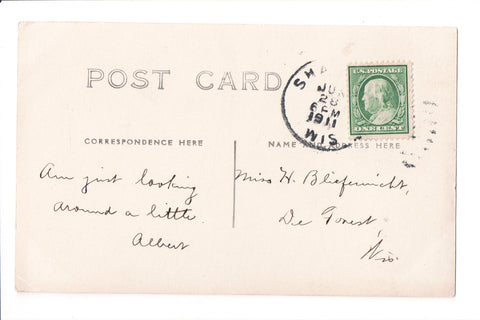 POST CARD
SHA
JUN
28
6 PM
1911
WIS
U.S. POSTAGE
ONE CENT
CORRESPONDENCE HERE
NAME AND ADDRESS HERE
Am just looking
around a little.
Albert
Miss H. Bliefernicht,
De Forest,
Wis.